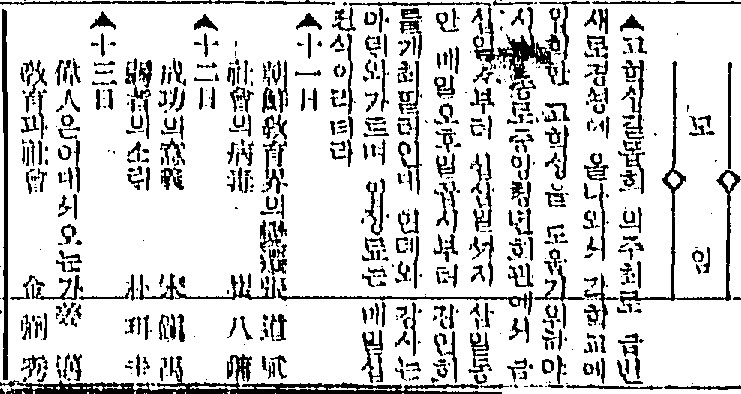 모임
▲고학생갈돕회 의주최로 금번
새로경성에 올나와서 각학교에
입학한 고학생을 도읍기위하야
시내종로중앙청년회관에서 금
십일일부터 십삼일까지 삼일동
안 매일오후일곱시부터 강연회
를개최할터인데 연뎨와 강사는
아뤠와가트며 입장료는 매일십
전식이라더라
▲十一日
朝鮮敎育界의變遷 張道斌
社會의病源 崔八鏞
▲十二日
成功의奮戰 宋鎭禹
弱者의소리
▲十三日
偉人은어대서오는가 姜邁
敎育과社會